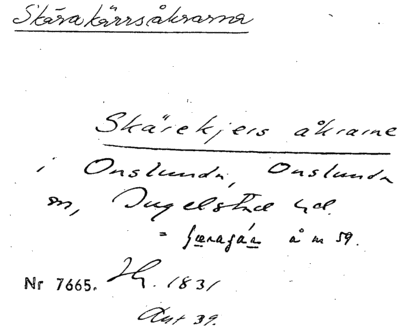 Skärakärrsåkrarna
Skärekjers åkrarne
i Onslunda, Onslunda
sn, Ingelstad hd.
= å m 59.
Nr 7665. 1831
Akt 39.